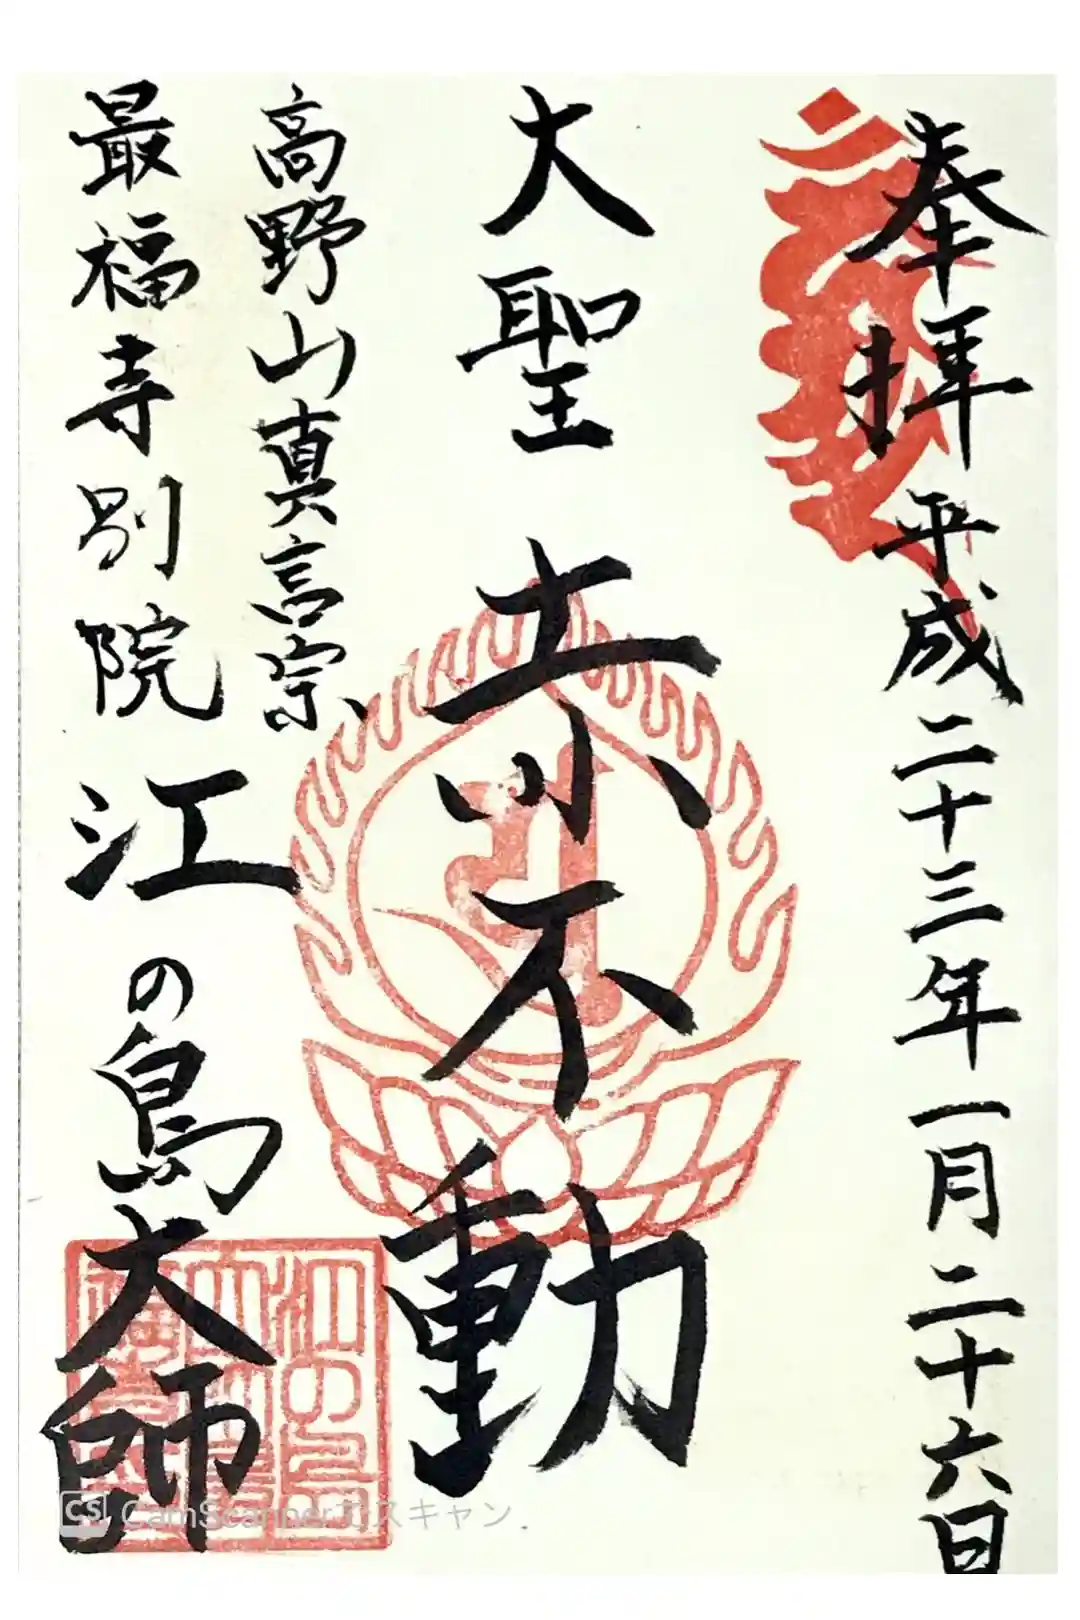 奉拝 平成二十三年一月二十六日
大聖赤不動
高野山真言宗
最福寺別院 江の島大師
江の島
CS CamScannerでスキャン